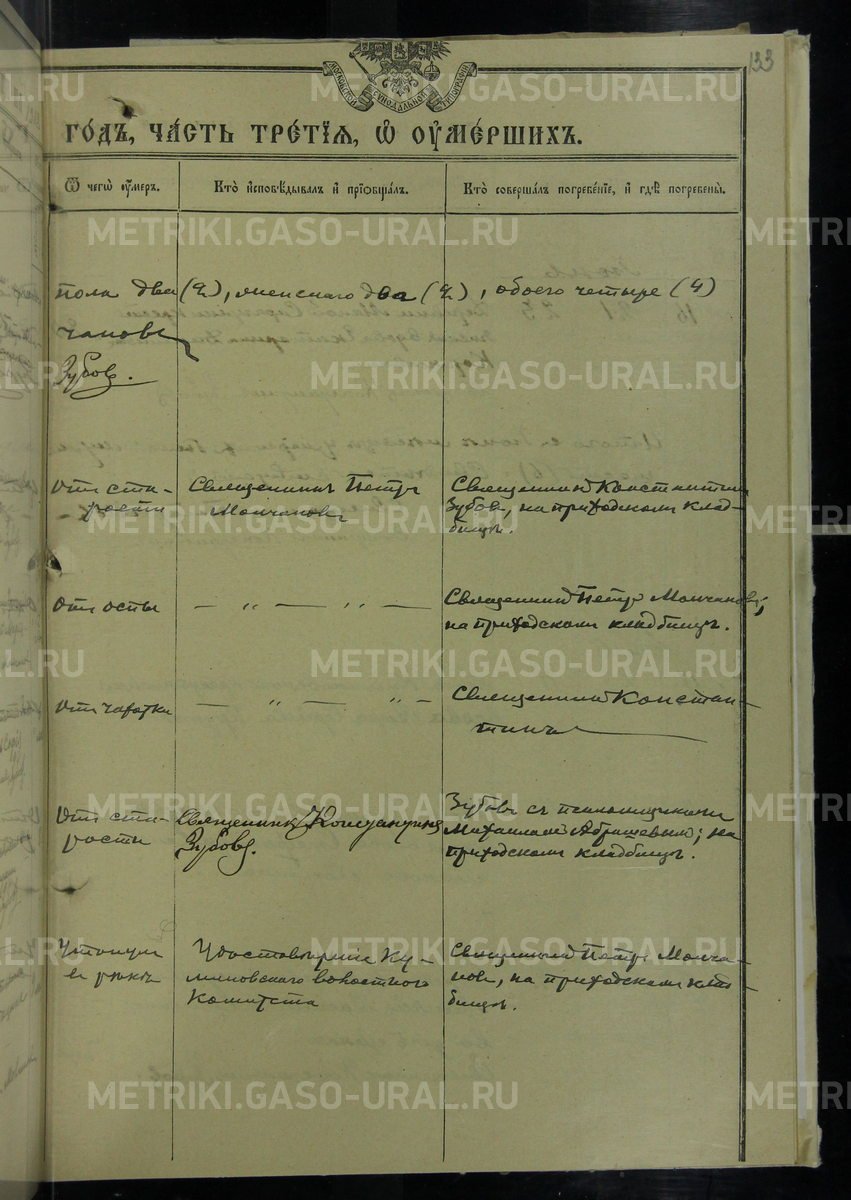 133
МОСКОВСКОЙ СУНОДАЛЬНОЙ ТИПОГРАФІИ
ГО́ДЪ, ЧА́СТЬ ТРЕ́ТІѦ, Ѽ ОУМЕ́РШИХЪ.
Ѿ чегѡ̀ оу́меръ.
Кто̀ и҆сповѣ́дывалъ и҆ прїѡбща́лъ.
Кто̀ соверша́лъ погребе́нїе, и҆ гдѣ̀ погребены̀.
пола два (2), женскаго два (2), обоего четыре (4)
чановъ
Зубовъ.
Отъ ста-
рости
Священникъ Петръ
Молчановъ
Священникъ Константинъ
Зубовъ, на приходскомъ клад-
бищѣ.
Отъ оспы
— " — " —
Священникъ Петръ Молчановъ;
на приходскомъ кладбищѣ.
Отъ чахотки
— " — " —
Священникъ Констан-
тинъ
Отъ ста-
рости
Священникъ Константинъ
Зубовъ.
Зубовъ съ псаломщикомъ
Михаиломъ; на
приходскомъ кладбищѣ.
Утонул
въ рѣкѣ
Удостовѣреніе Ку-
волостного
Комитета
Священникъ Петръ Молча-
новъ, на приходскомъ клад-
бищѣ.
METRIKI.GASO-URAL.RU